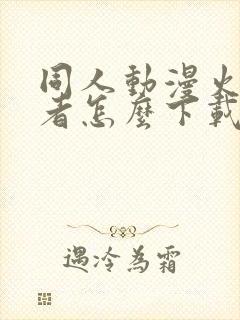 同人動漫火
者怎麼下載
遇冷為霜